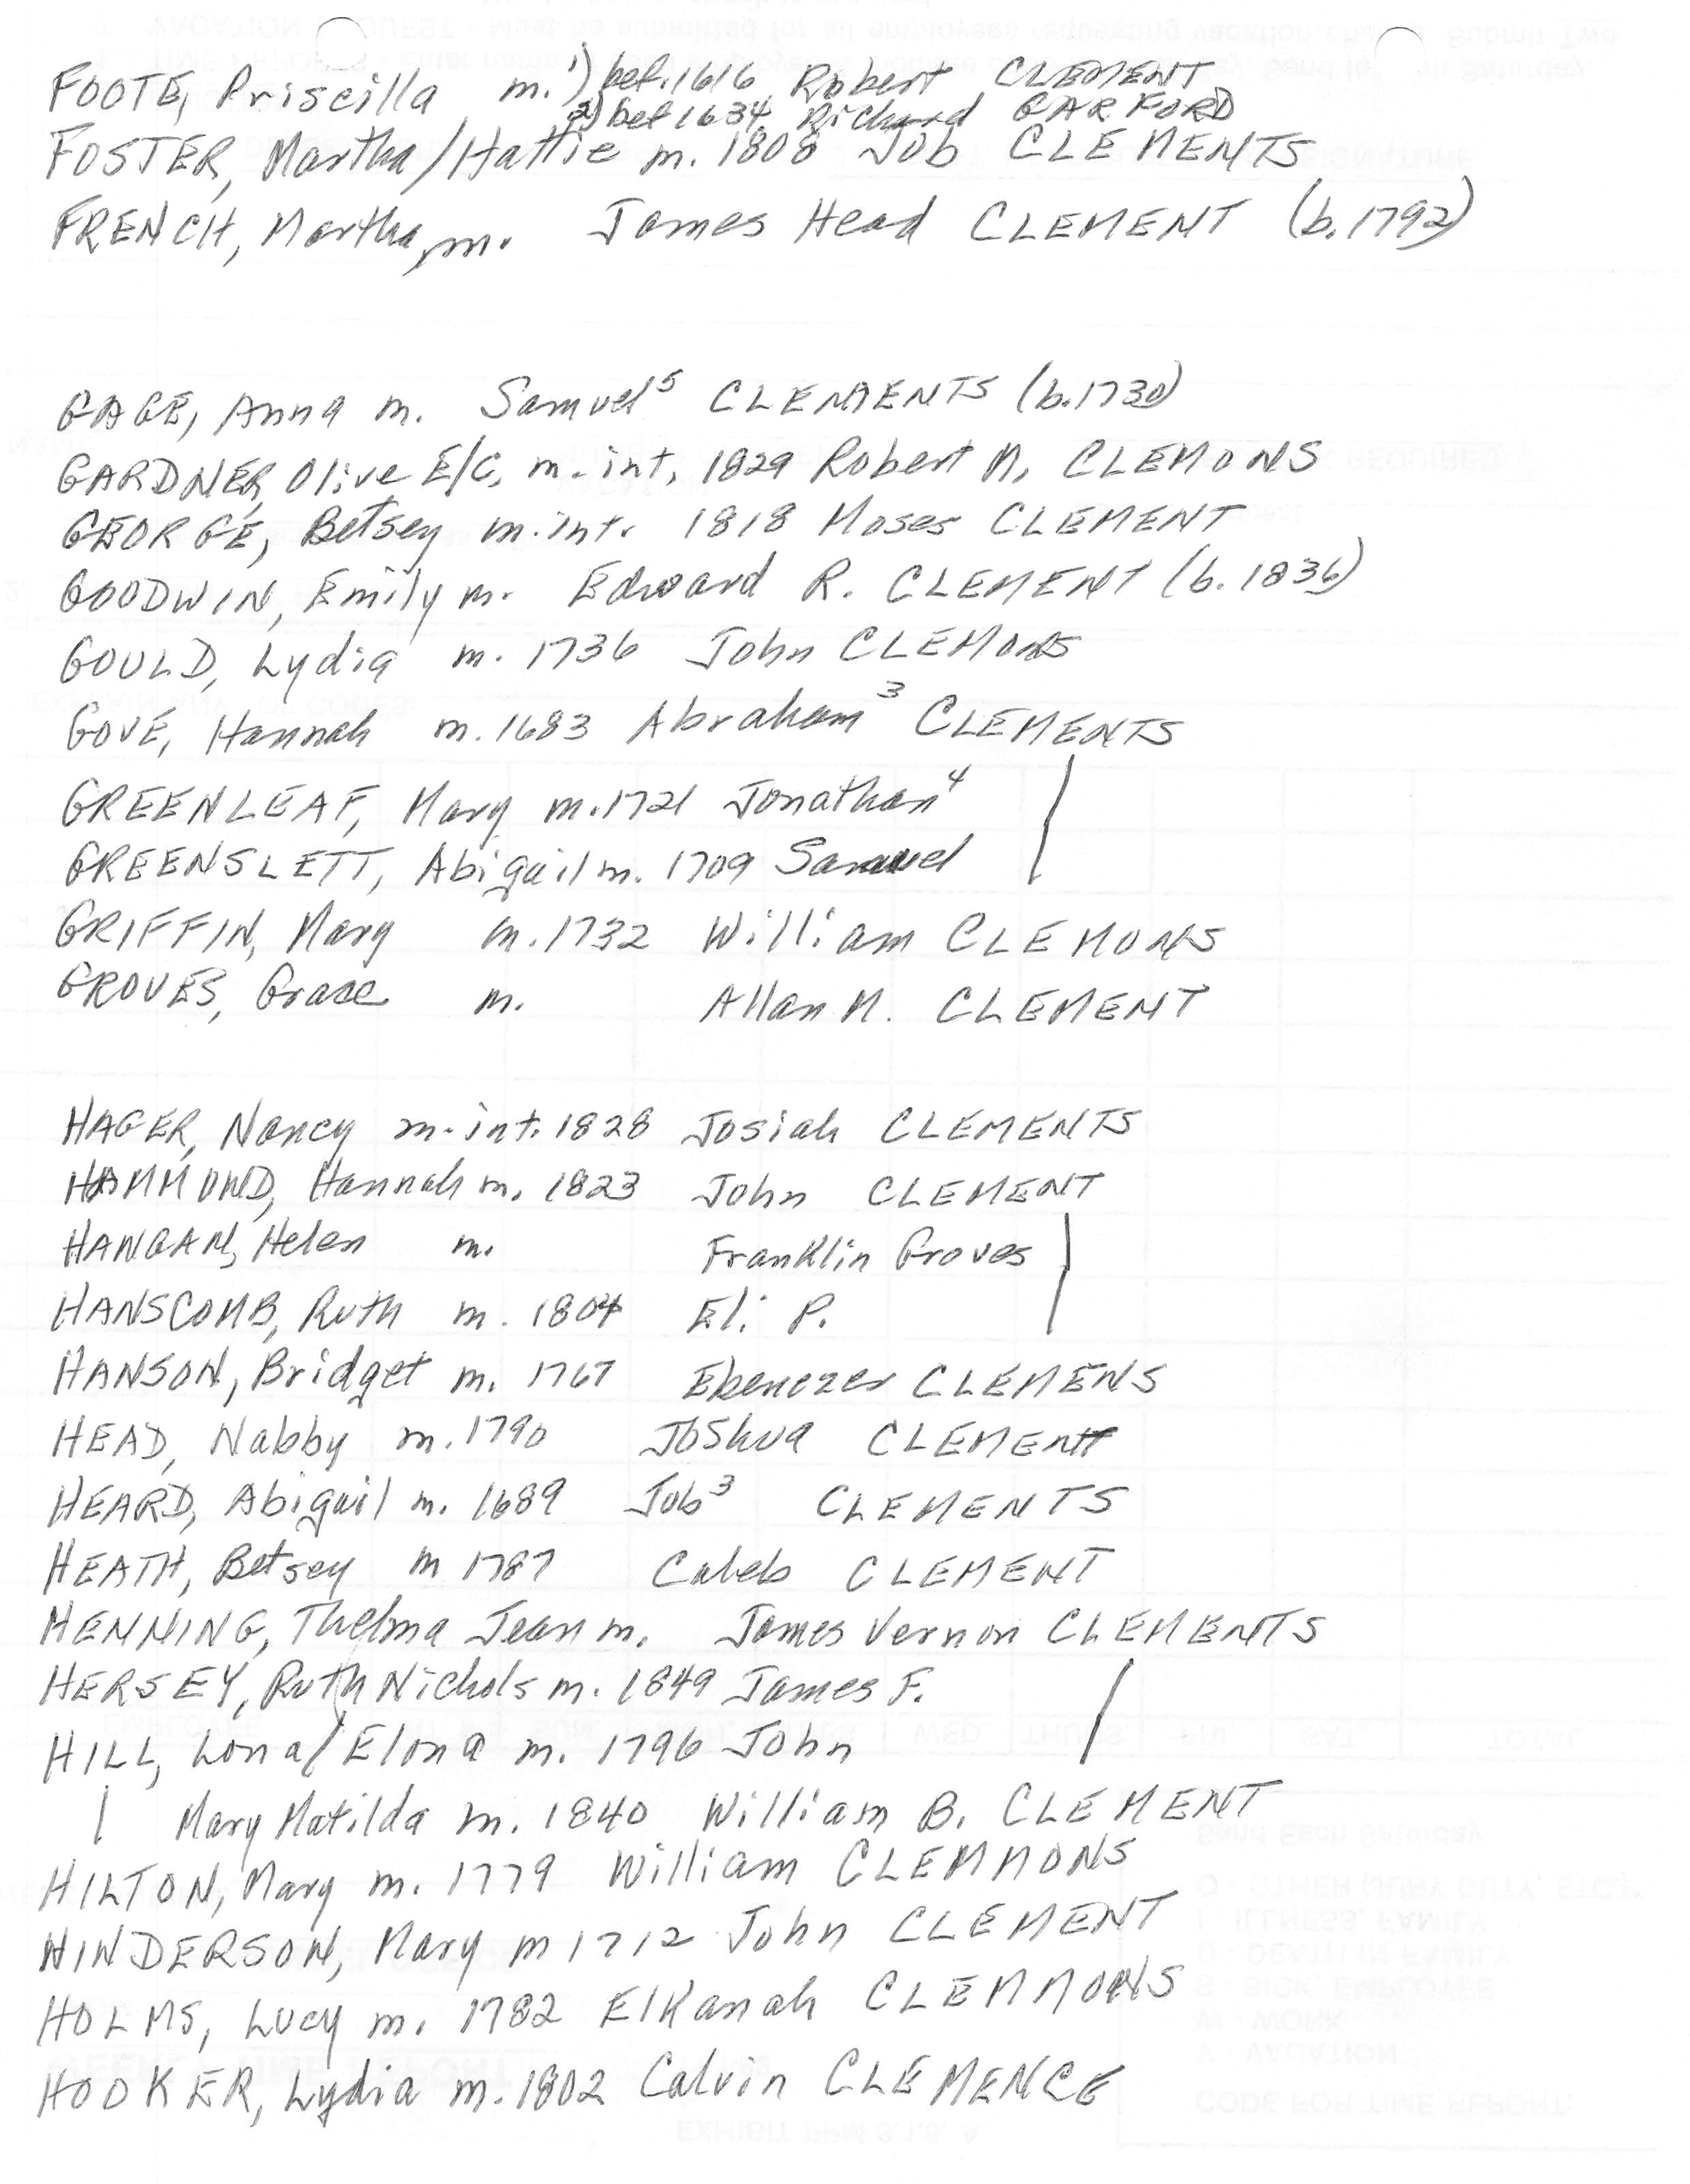 FOOTE, Priscilla m. 1) bef. 1616 Robert CLEMENT
2) bef 1634 Richard GARFORD
FOSTER, Martha/Hattie m. 1808 Job CLEMENTS
FRENCH, Martha, m. James Head CLEMENT (b. 1792)
GAGE, Anna m. Samuel⁵ CLEMENTS (b. 1730)
GARDNER, Olive E/C, m. int. 1829 Robert M. CLEMONS
GEORGE, Betsey m. int. 1818 Moses CLEMENT
GOODWIN, Emily m. Edward R. CLEMENT (b. 1836)
GOULD, Lydia m. 1736 John CLEMONS
GOVE, Hannah m. 1683 Abraham³ CLEMENTS
GREENLEAF, Mary m. 1721 Jonathan⁴ |
GREENSLETT, Abigail m. 1709 Samuel |
GRIFFIN, Mary m. 1732 William CLEMONS
GROVES, Grace m. Allan M. CLEMENT
HAGER, Nancy m. int. 1828 Josiah CLEMENTS
HAMMOND, Hannah m. 1823 John CLEMENT
HANGAN, Helen m. Franklin Groves |
HANSCOMB, Ruth m. 1804 Eli P. |
HANSON, Bridget m. 1767 Ebenezer CLEMENS
HEAD, Nabby m. 1790 Joshua CLEMENT
HEARD, Abigail m. 1689 Job³ CLEMENTS
HEATH, Betsey m 1787 Caleb CLEMENT
HENNING, Thelma Jean m. James Vernon CLEMENTS
HERSEY, Ruth Nichols m. 1849 James F. |
HILL, Lona/Elona m. 1796 John |
| Mary Matilda m. 1840 William B. CLEMENT
HILTON, Mary m. 1779 William CLEMMONS
HINDERSON, Mary m 1712 John CLEMENT
HOLMS, Lucy m. 1782 Elkanah CLEMMONS
HOOKER, Lydia m. 1802 Calvin CLEMENCE